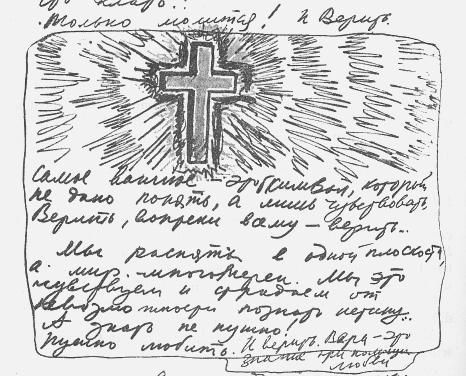 Только молиться! И Верить.
Самое важное – это Символ, который
не дано понять, а лишь чувствовать.
Верить, вопреки всему – верить..
Мы распяты в одной плоскости,
а мир – многомерен. Мы это
чувствуем и страдаем от
невозможности познать истину..
А знать не нужно!
Нужно любить. И верить. Вера – это
знание при помощи
любви